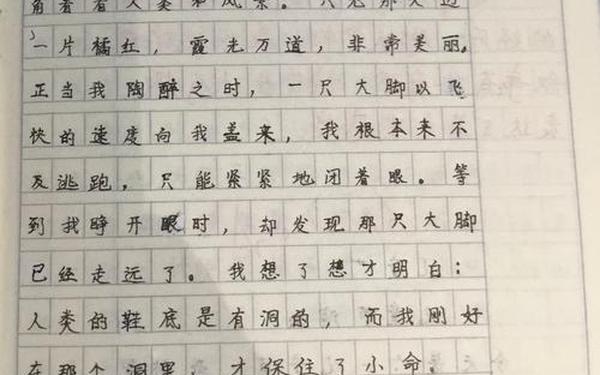 角看看人类和风景。只见那天边
一片橘红，霞光万道，非常美丽。
正当我陶醉之时，一尺大脚以飞
快的速度向我盖来，我根本来不
及逃跑，只能紧紧地闭着眼。等
到我睁开眼时，却发现那尺大脚
已经走远了。我想了想才明白：
人类的鞋底是有洞的，而我刚好
在那个洞里，才保住了小命。